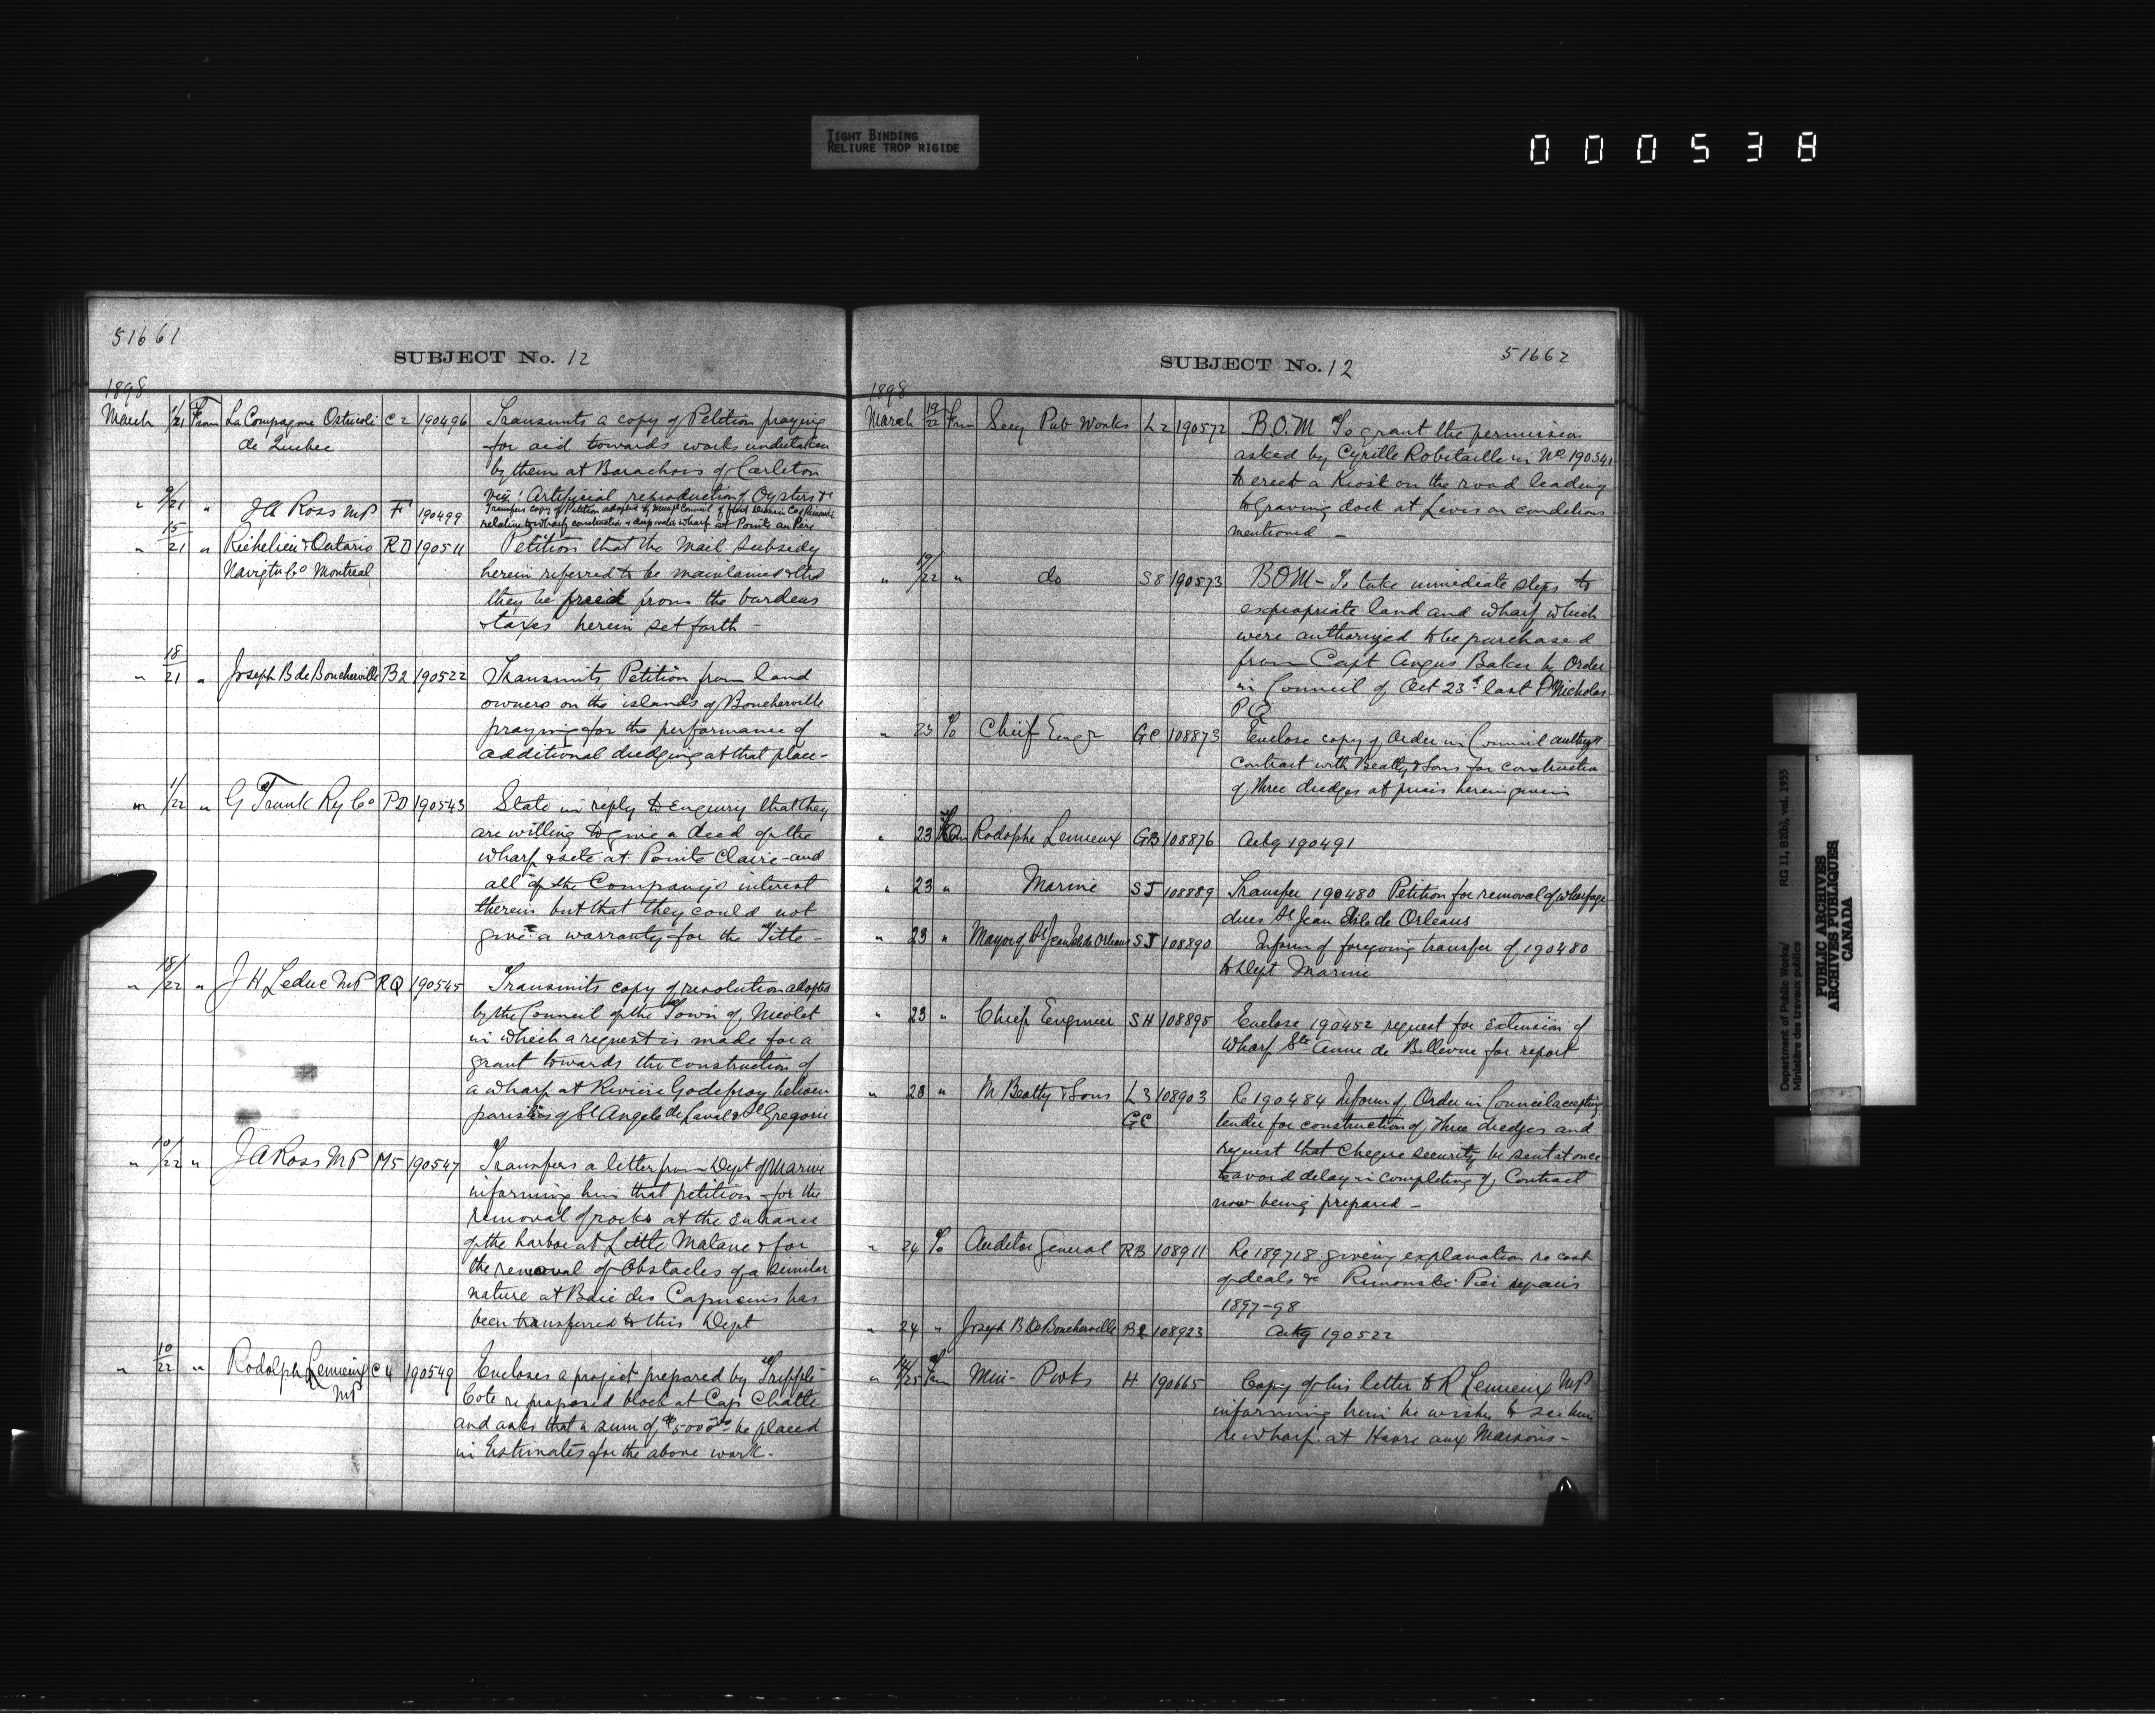 TIGHT BINDING
RELIURE TROP RIGIDE
000538
51661
SUBJECT No. 12
1898
March 1/21 From La Compagnie Ostricole C2 190496 Transmits a copy of Petition praying
de Quebec for aid towards work undertaken
by them at Barachois of Carleton
viz: Artificial reproduction of Oysters &c
" 9/21 " J A Ross MP F 190499 Transfers copy of Petition adopted by Municipal Council of
relative to wharf construction & deep water wharf at Pointe au Père
" 15/21 " Richelieu & Ontario RD 190511 Petition that the Mail Subsidy
Navigtn Co Montreal herein referred to be maintained & that
they be freed from the burdens
& taxes herein set forth -
" 18/21 " Joseph B de Boucherville B2 190522 Transmits Petition from land
owners on the islands of Boucherville
praying for the performance of
additional dredging at that place -
" 1/22 " G Trunk Ry Co PD 190543 State in reply to Enquiry that they
are willing to give a deed of the
wharf & site at Pointe Claire and
all of the Company's interest
therein but that they could not
give a warranty for the Title -
" 18/22 " J H Leduc MP RQ 190545 Transmits copy of resolution adopted
by the Council of the Town of Nicolet
in which a request is made for a
grant towards the construction of
a wharf at Riviere Godefroy between
parishes of St Angele de Laval & St Gregoire
" 10/22 " J A Ross MP M5 190547 Transfers a letter from Dept of Marine
informing him that petition for the
removal of rocks at the Entrance
of the harbor at Little Matane & for
the removal of Obstacles of a similar
nature at Baie des Capucins has
been transferred to this Dept
" 10/22 " Rodolphe Lemieux C4 190549 Encloses a project prepared by
MP Cote re proposed block at Cap Chatte
and asks that a sum of $5000 be placed
in Estimates for the above work -
SUBJECT No. 12
51662
1898
March 19/22 From Secy Pub Works L2 190572 B.O.M To grant the permission
asked by Cyrille Robitaille in No 190341
to erect a Kiosk on the road leading
to Graving dock at Levis on conditions
mentioned -
" 19/22 " do S8 190573 BOM - To take immediate steps to
expropriate land and wharf which
were authorized to be purchased
from Capt Angus Baker by Order
in Council of Oct 23d last St Nicholas
PQ
" 23 To Chief Engr GC 108873 Enclose copy of Order in Council
contract with Beatty & Sons for construction
of three dredges at prices herein given
" 23 Rodolphe Lemieux GB 108876 Ackg 190491
" 23 " Marine SJ 108889 Transfer 190480 Petition for removal of wharfage
dues St Jean Isle de Orleans
" 23 " Mayor of St Jean Isle de Orleans SJ 108890 Inform of foregoing transfer of 190480
to Dept Marine
" 23 " Chief Engineer SH 108895 Enclose 190452 request for Extension of
wharf Ste Anne de Bellevue for report
" 23 " M Beatty & Sons L3 108903 Re 190484 Inform of Order in Council accepting
GC tender for construction of three dredges and
request that cheque security be sent at once
to avoid delay in completing of Contract
now being prepared -
" 24 To Auditor General RB 108911 Re 189718 giving explanation re cost
of deals &c Rimouski Pier repairs
1897-98
" 24 " Joseph B de Boucherville B2 108923 Ackg 190522
" 14/25 From Min- Pwks H 190665 Copy of his letter to R Lemieux MP
informing him he wishes to see him
re wharf at Havre aux Maisons -
Department of Public Works/ RG 11, B2(b), vol. 1955
Ministère des travaux publics
PUBLIC ARCHIVES
ARCHIVES PUBLIQUES
CANADA